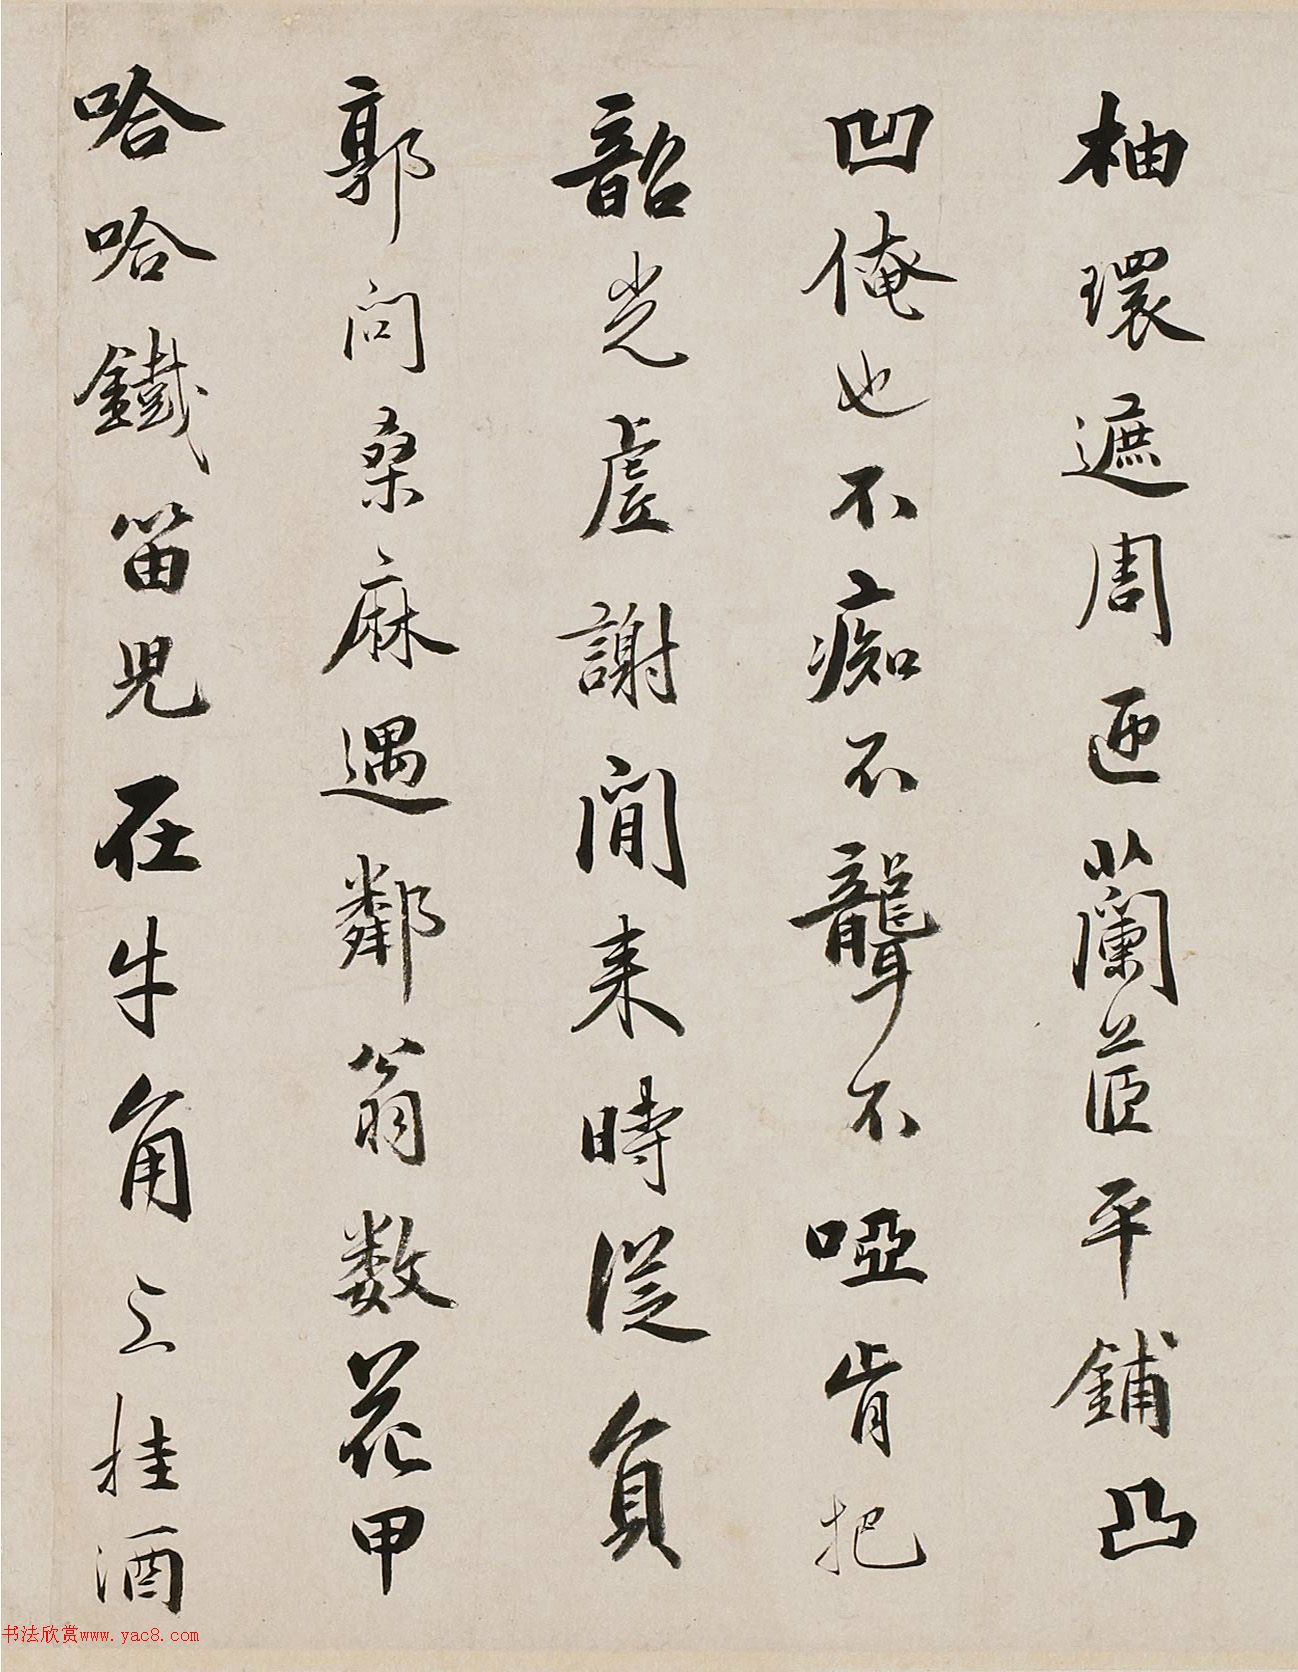 柚環遮周匝蘭茝平鋪凸
凹俺也不痴不聾不啞肯把
韶光虛謝閒來時從負
郭問桑麻遇鄰翁数花甲
哈哈鐵笛兒在牛角上挂酒
书法欣赏www.yac8.com